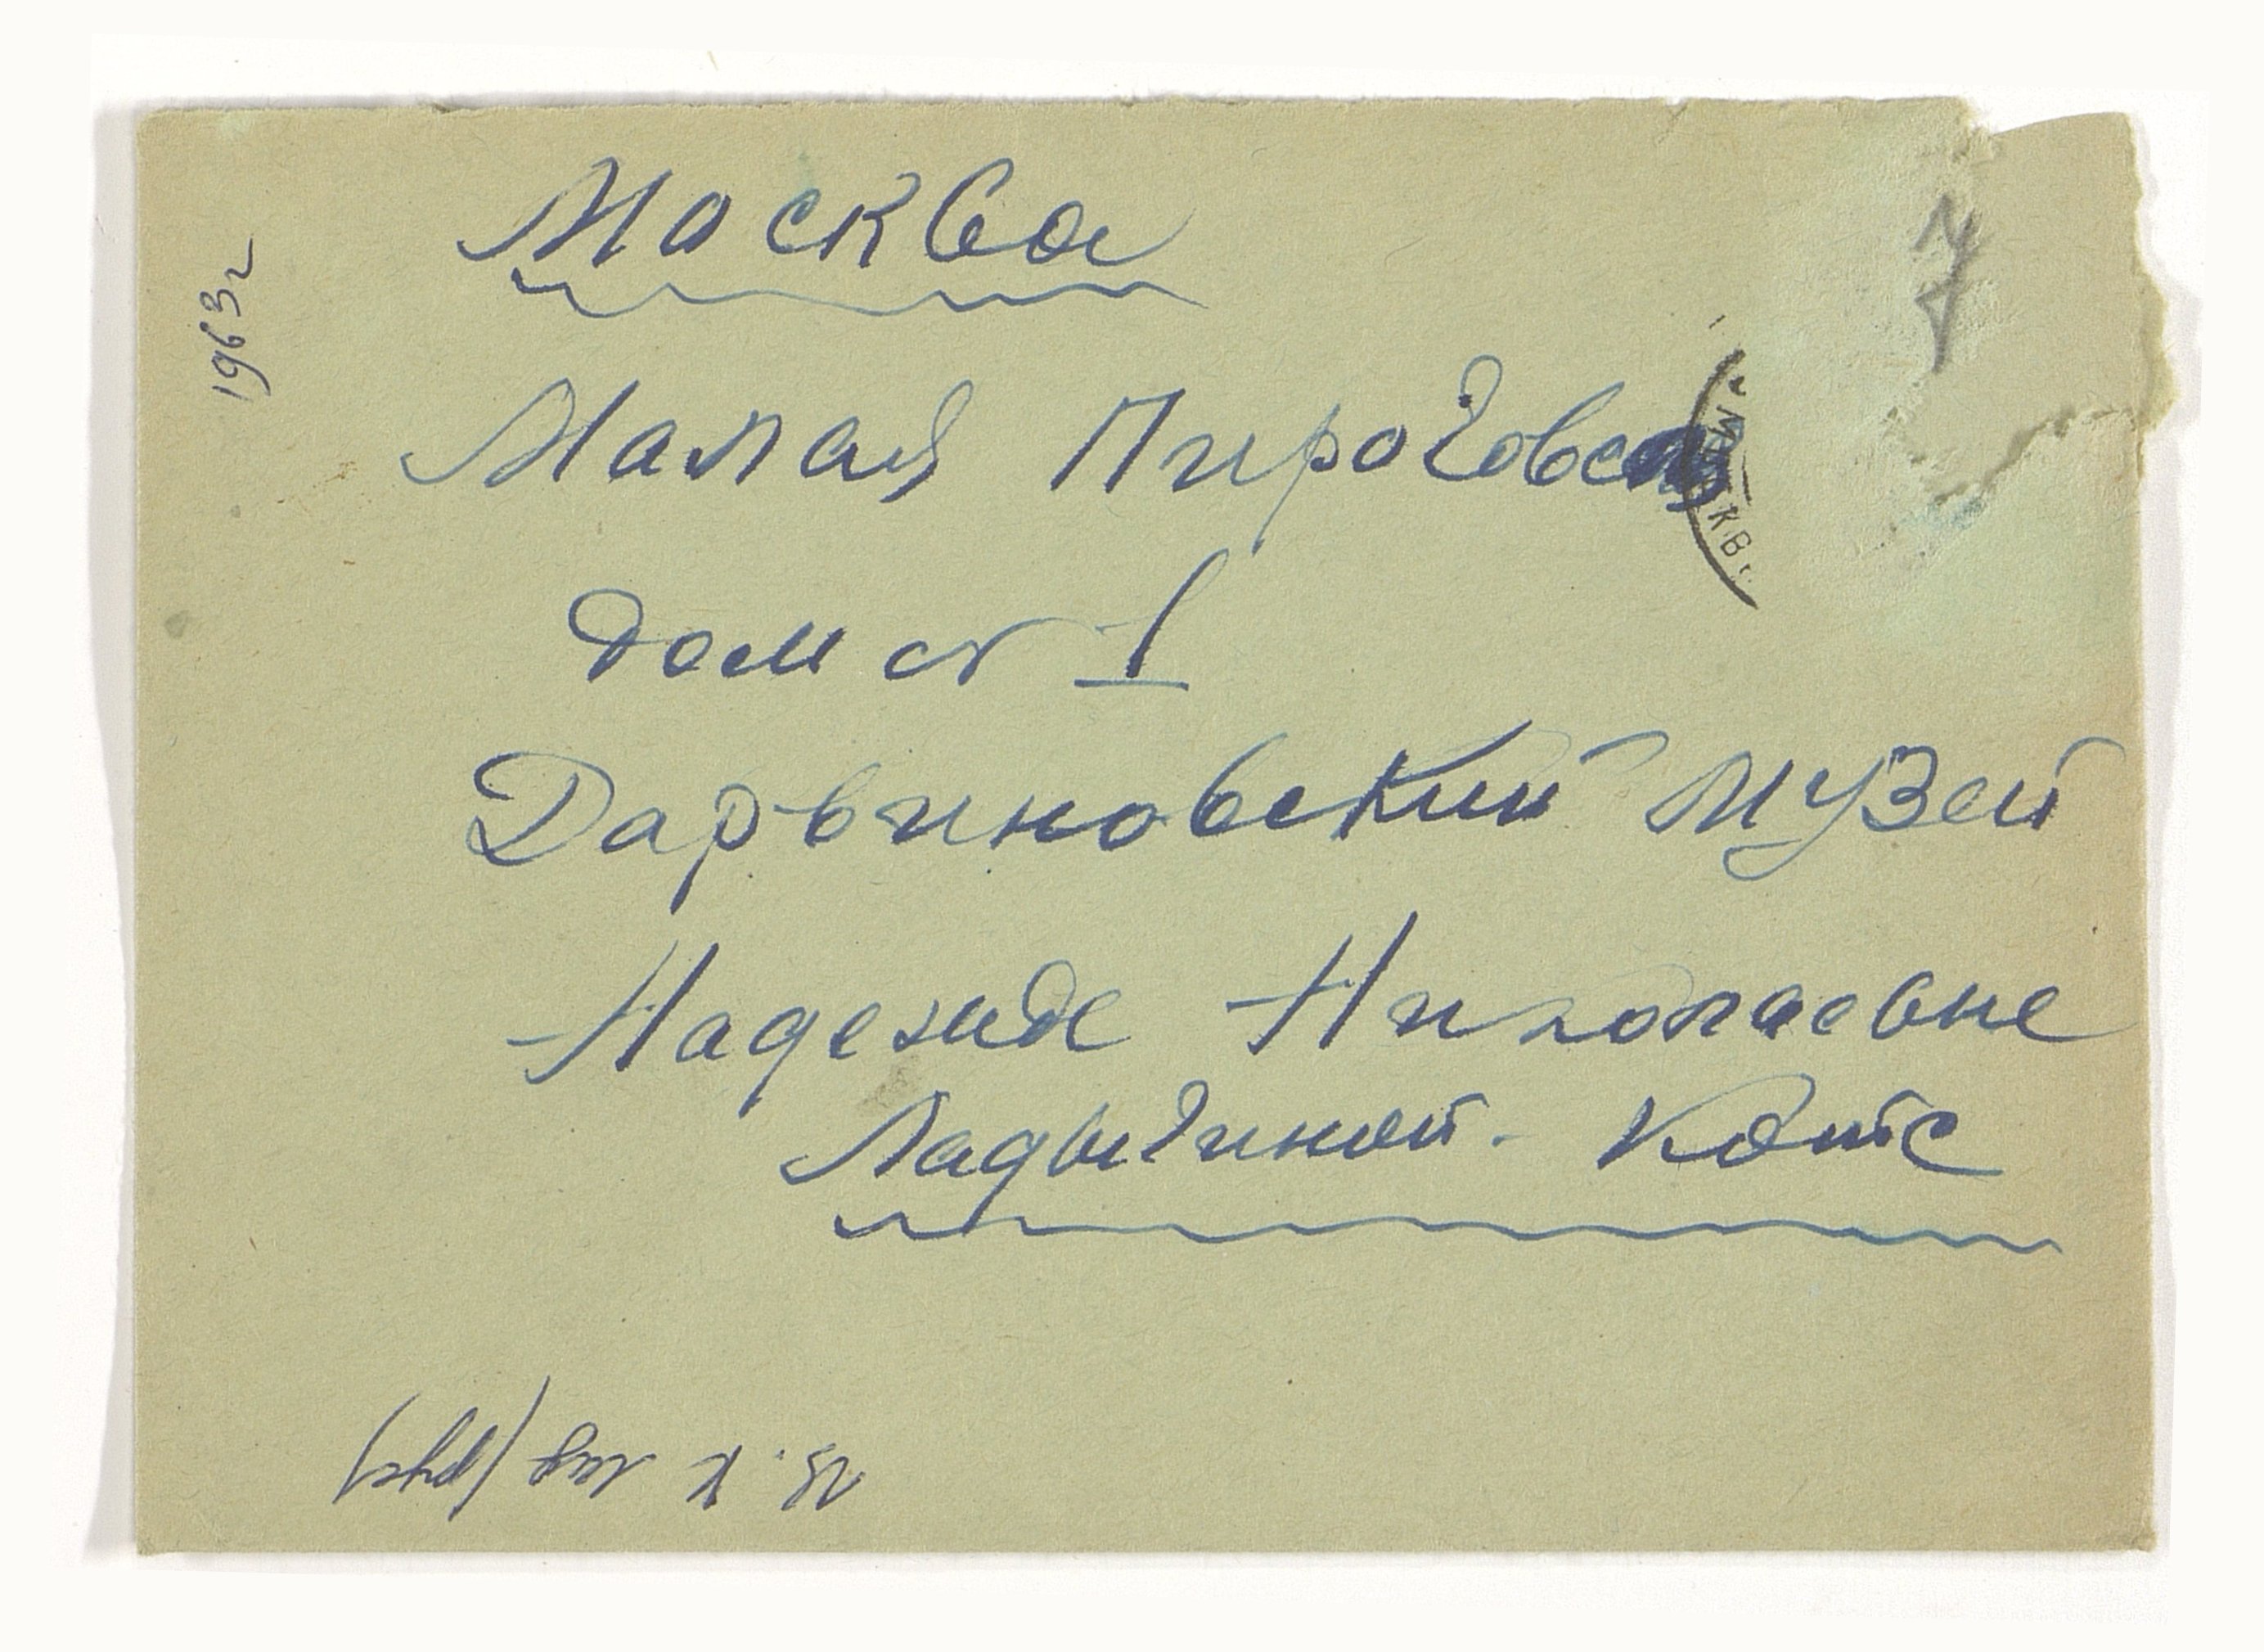 Москва
1963 г
7
Малая Пироговская
дом № 1
Дарвиновский музей
Надежде Николаевне
Ладыгиной - Котс